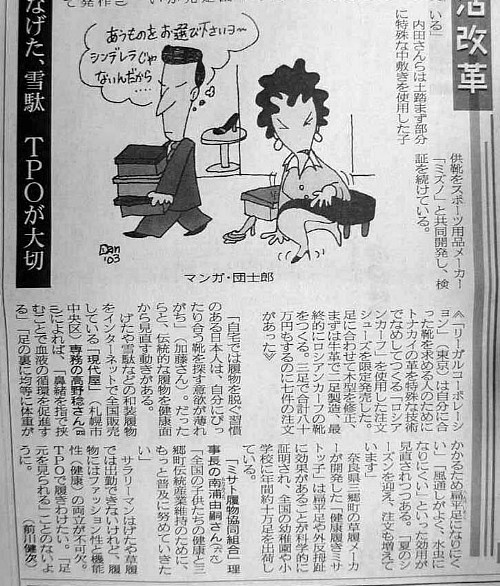 活改革
いる」
内田さんらは土踏まず部分
に特殊な中敷きを使用した子
供靴をスポーツ用品メーカー
「ミズノ」と共同開発し、検
証を続けている。
なげた、雪駄 TPOが大切
あうものをお選び下さいヨ〜
シンデレラじゃ
ないんだから…
Dan
'03
マンガ・団士郎
「リーガルコーポレーシ
ョン」(東京)は自分に合
った靴を求める人のために
トナカイの革を特殊な技術
でなめしてつくる「ロシア
ンカーフ」を使用した注文
シューズを限定発売した。
足に合わせて木型を修正、
まずは牛革で二足製造、最
終的にロシアンカーフの靴
をつくる。三足で合計八十
万円もするのに七件の注文
があった
「自宅では履物を脱ぐ習慣
のある日本人は、自分にぴっ
たり合う靴を探す意欲が薄れ
がち」(加藤さん)。だった
ら、伝統的な履物を健康面
から見直す動きがある。
げたや雪駄などの和装履物
をインターネットで全国販売
している「現代屋」(札幌市
中央区)専務の高野稔さん
によれば、「鼻緒を指で挟
むことで血液の循環を促進す
る」「足の裏に均等に体重が
かかるため扁平足になりにく
い」「風通しがよく、水虫に
なりにくい」といった効用が
見直されつつある。「夏のシ
ーズンを迎え、注文も増えて
います」
奈良県三郷町の履物メーカ
ーが開発した「健康履きミサ
トッ子」は扁平足や外反母趾
に効果があることが科学的に
証明され、全国の幼稚園や小
学校に年間約十万足を出荷し
ている。
「ミサト履物協同組合」理
事長の南浦由嗣さん
「全国の子供たちの健康と三
郷町伝統産業維持のために、
もっと普及に努めていきた
い」
サラリーマンはげたや草履
では出勤できないけれど、履
物にはファッション性と機能
性(健康)の両立が不可欠。
TPOで履きわけたい。「足
元を見られる」ことのないよ
うに。 (前川健次)